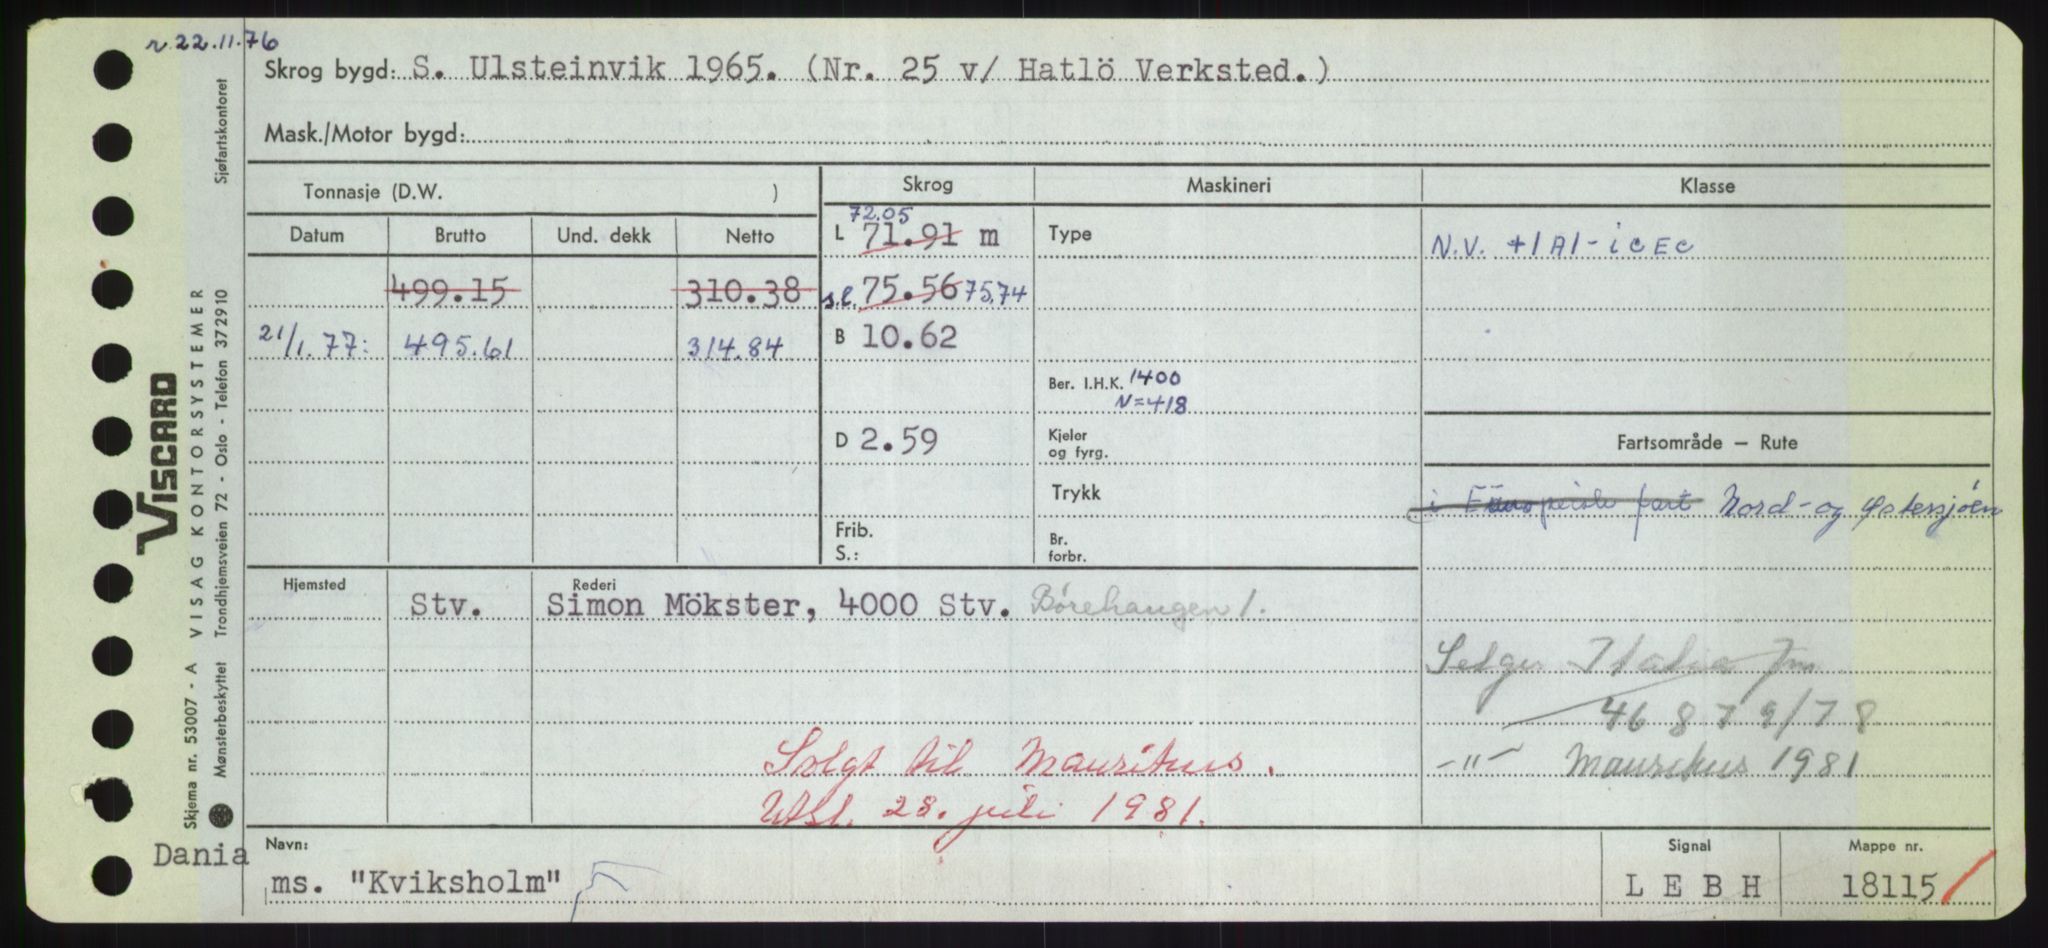 r. 22.11.76
Skrog bygd: S. Ulsteinvik 1965. (Nr. 25 v/ Hatlö Verksted.)
Mask./Motor bygd:
Tonnasje (D.W. )
Skrog
Maskineri
Klasse
Datum Brutto Und. dekk Netto
72.05
L 71.91 m
Type
N.V. +1A1-ICEC
499.15 310.38
s.l. 75.56 75,74
21/1.77: 495.61 314.84
B 10.62
Ber. I.H.K. 1400
N=418
D 2.59
Kjeler
og fyrg.
Fartsområde — Rute
Trykk
i Europeisk fart Nord- og Østersjøen
Frib.
S.:
Br.
forbr.
Hjemsted
Rederi
Stv. Simon Mökster, 4000 Stv. Børehaugen 1.
Selges Italia
46 8 7 9/78
-"- Mauritius 1981
Solgt til Mauritius.
Utsl. 28. juli 1981.
Dania
Navn:
ms. "Kviksholm"
Signal
LEBH
Mappe nr.
18115
VISCARD
Skjema nr. 53007 - A VISAG KONTORSYSTEMER
Mønsterbeskyttet Trondhjemsveien 72 - Oslo - Telefon 372910 Sjøfartskontoret